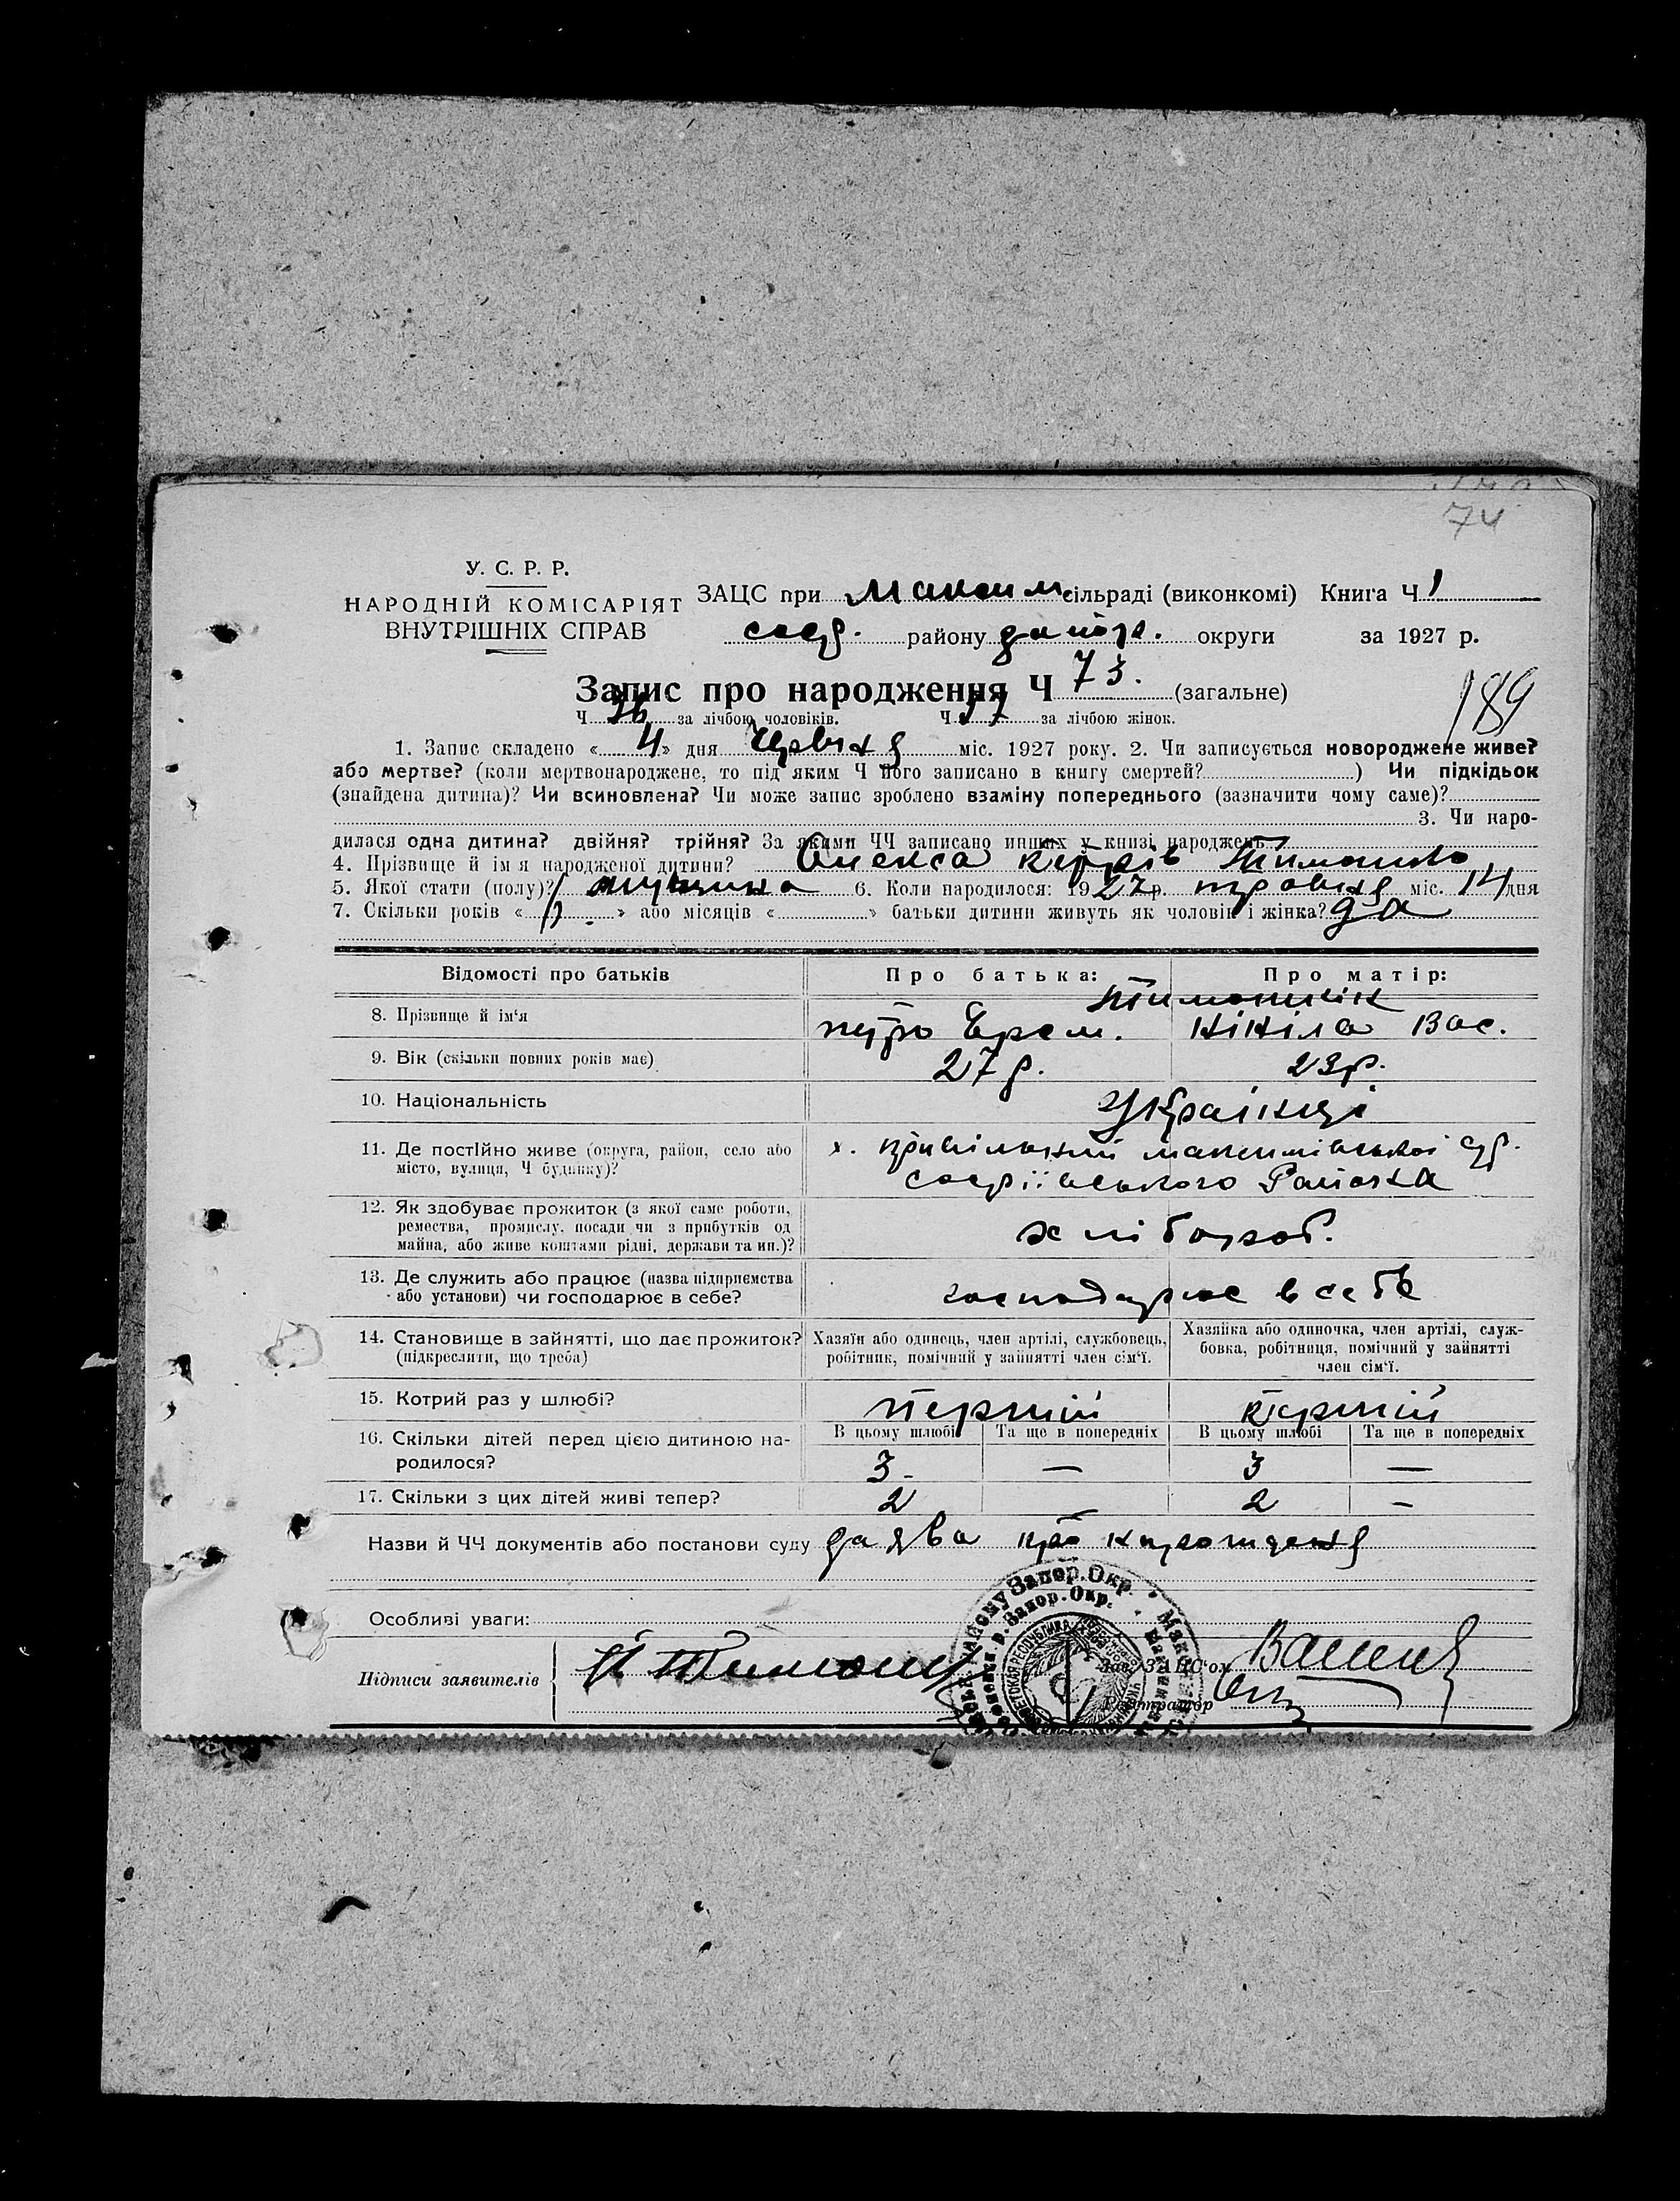 74
У. С. Р. Р.
НАРОДНІЙ КОМІСАРІЯТ
ВНУТРІШНІХ СПРАВ
ЗАЦС при Максим сільраді (виконкомі) Книга Ч 1
соф. району запор. округи за 1927 р.
Запис про народження Ч 73. (загальне)
189
Ч 36 за лічбою чоловіків. Ч 37 за лічбою жінок.
1. Запис складено « 4 » дня червня міс. 1927 року. 2. Чи записується новороджене живе?
або мертве? (коли мертвонароджене, то під яким Ч його записано в книгу смертей? ) Чи підкідьок
(знайдена дитина)? Чи всиновлена? Чи може запис зроблено взаміну попереднього (зазначити чому саме)?
3. Чи наро-
дилася одна дитина? двійня? трійня? За якими ЧЧ записано инших у книзі народжень?
4. Прізвище й ім'я народженої дитини? Олекса Петрів
5. Якої стати (полу)? мущина 6. Коли народилося: 1927 р. травня міс. 14 дня
7. Скільки років « » або місяців « » батьки дитини живуть як чоловік і жінка? да
Відомості про батьків
Про батька: Про матір:
8. Прізвище й ім'я
петро Ерем. Вас.
9. Вік (скільки повних років має) 27 р. 23 р.
10. Національність Українці
11. Де постійно живе (округа, район, село або
місто, вулиця, Ч будинку)?
х. привільний максимівської с/р.
софіївського Району
12. Як здобуває прожиток (з якої саме роботи,
ремества, промислу, посади чи з прибутків од
майна, або живе коштами рідні, держави та ин.)?
хлібороб.
13. Де служить або працює (назва підприємства
або установи) чи господарює в себе?
господарює в себе
14. Становище в зайнятті, що дає прожиток?
(підкреслити, що треба)
Хазяїн або одинець, член артілі, службовець,
робітник, помічний у зайнятті член сім'ї.
Хазяйка або одиночка, член артілі, служ-
бовка, робітниця, помічний у зайнятті
член сім'ї.
15. Котрий раз у шлюбі? перший перший
16. Скільки дітей перед цією дитиною на-
родилося?
В цьому шлюбі Та ще в попередніх В цьому шлюбі Та ще в попередніх
3 — 3 —
17. Скільки з цих дітей живі тепер? 2 — 2 —
Назви й ЧЧ документів або постанови суду заява про народження
Особливі уваги:
Підписи заявителів
Зав. ЗАЦС'ом
Реєстратор